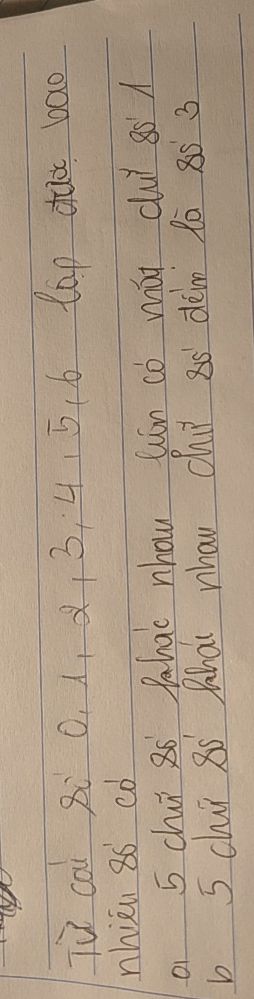 Từ các số 0, 1, 2, 3, 4, 5, 6 lập được bao
nhiêu số có
a 5 chữ số khác nhau luôn có mặt chữ số 1
b 5 chữ số khác nhau chữ số đếm là số 3